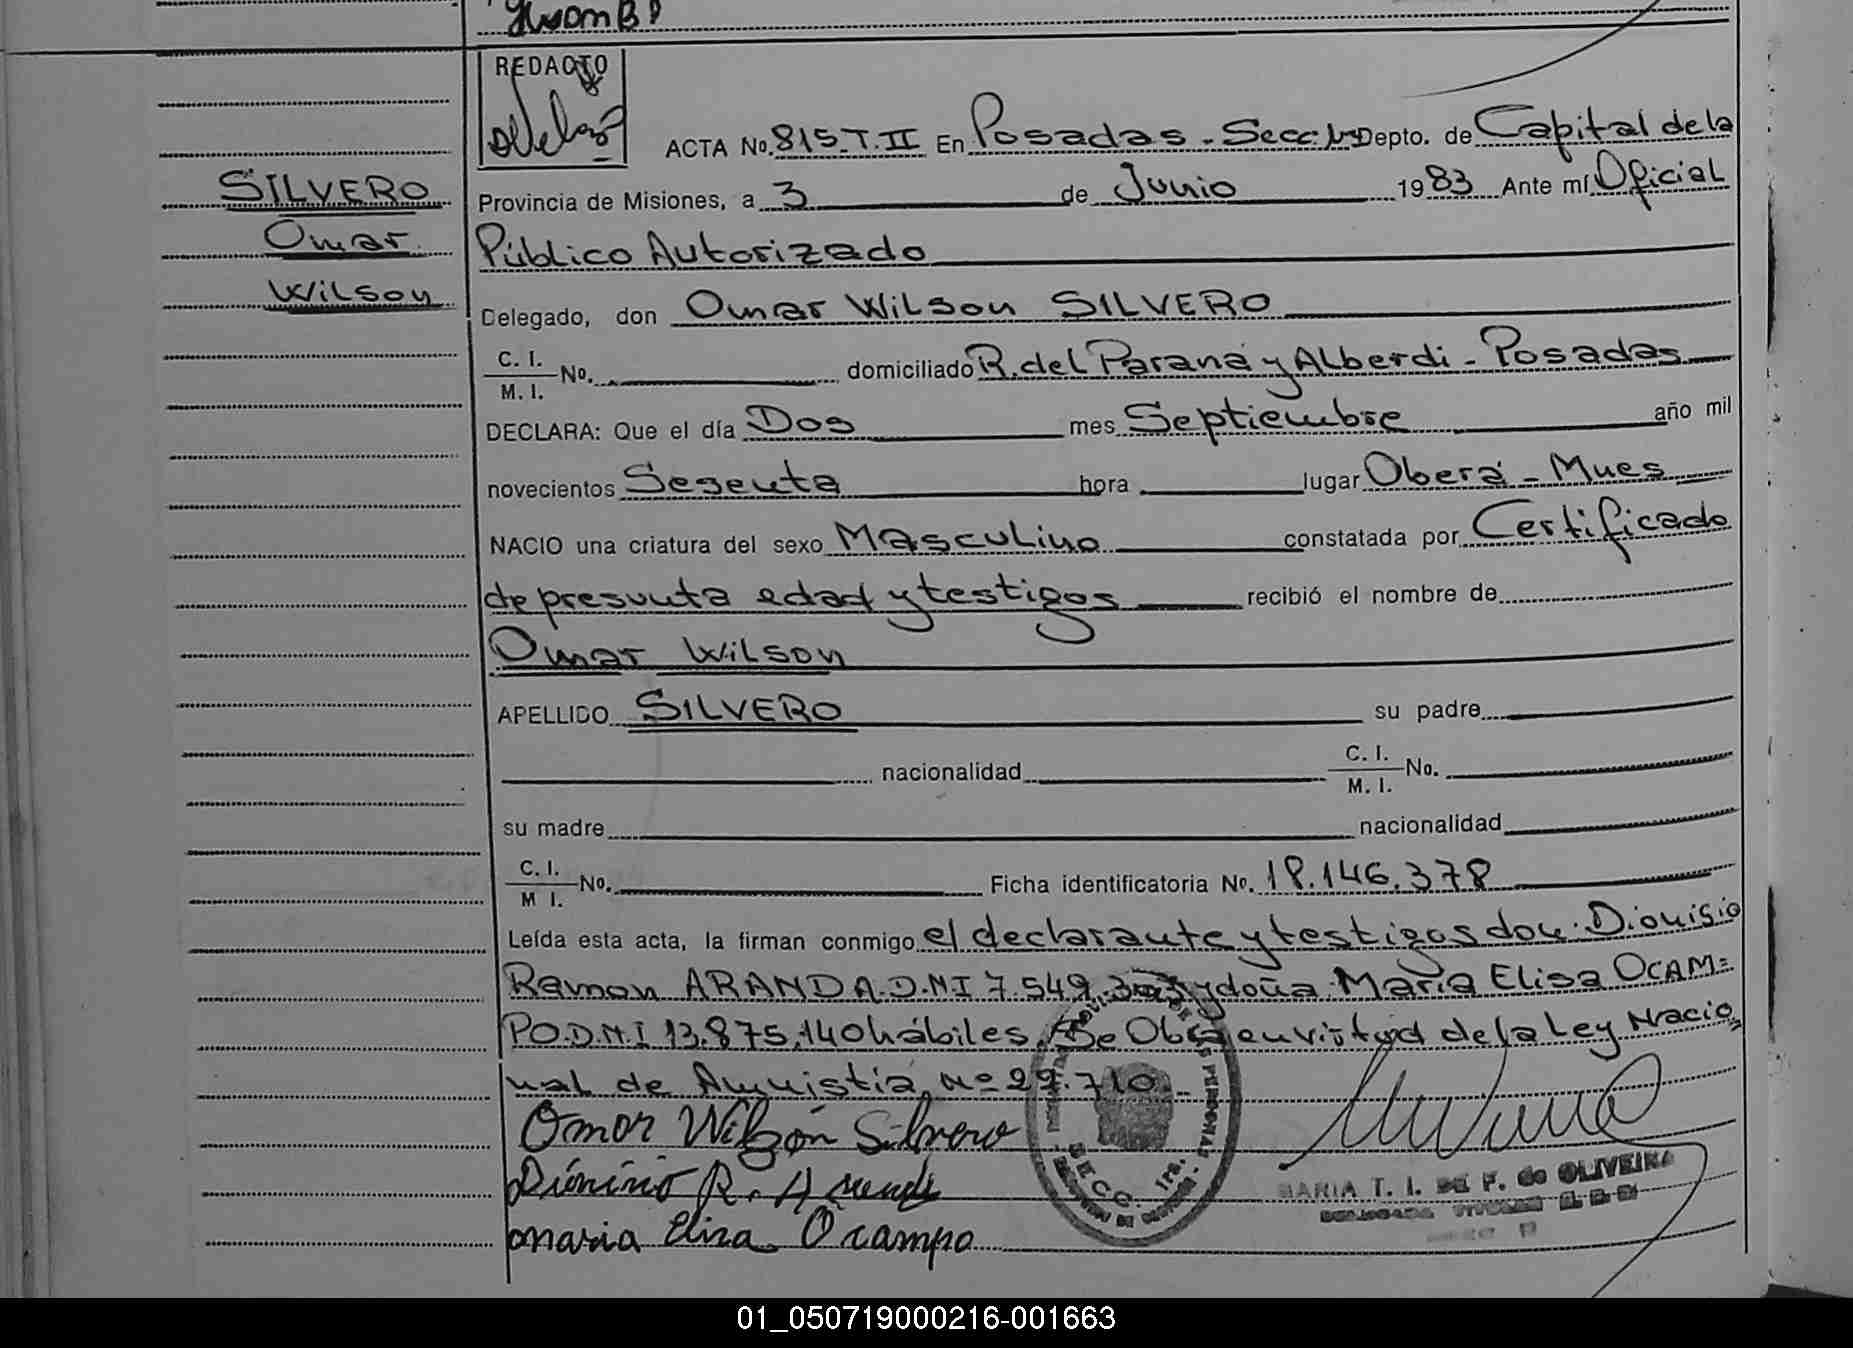 REDACTO
ACTA No. 815-T.II En Posadas - Secc. 1ra Depto. de Capital de la
SILVERO
Omar
Wilson
Provincia de Misiones, a 3 de Junio 1983 Ante mí Oficial
Público Autorizado
Delegado, don Omar Wilson SILVERO
C. I.
M. I. No. domiciliado R. del Paraná y Alberdi - Posadas
DECLARA: Que el día Dos mes Septiembre año mil
novecientos Sesenta hora lugar Oberá - Mnes
NACIO una criatura del sexo Masculino constatada por Certificado
de presunta edad y testigos recibió el nombre de
Omar Wilson
APELLIDO SILVERO su padre
nacionalidad C. I.
M. I. No.
su madre nacionalidad
C. I.
M I. No. Ficha identificatoria No. 18.146.378
Leída esta acta, la firman conmigo el declarante y testigos don: Dionisio
Ramon ARANDA D.N.I 7.549. y doña María Elisa OCAM=
PO.D.N.I 13.875.140 hábiles. Se Obra en virtud de la Ley Nacio
nal de Amnistía Nº 22.710.-
Omar Wilson Silvero
R.
maria Elisa Ocampo
PERSONAS
SECC. 1ra.
MARIA T. I. DE F. de OLIVEIRA
01_050719000216-001663